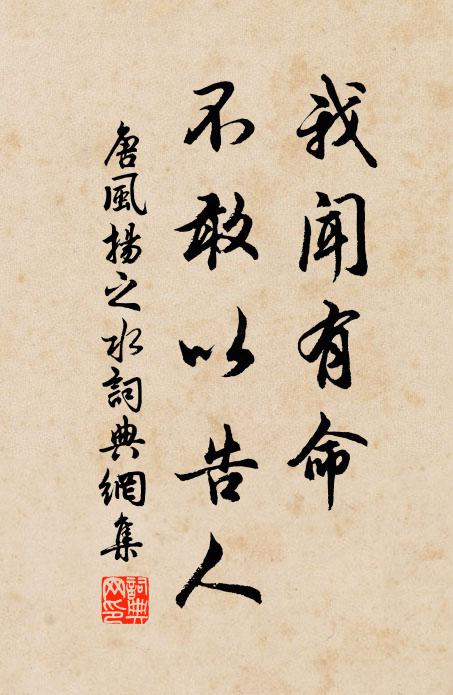 我聞有命
不敢以告人
唐風揚之水詞典網集
詞典
网印